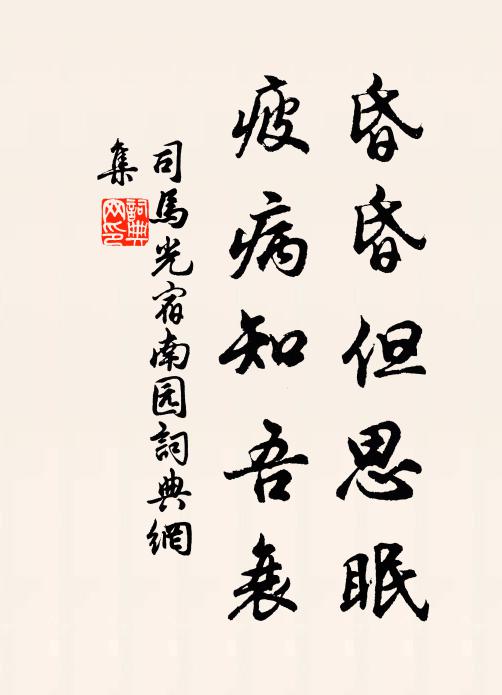 昏昏但思眠
疲病知吾衰
司馬光宿南园詞典網
集
詞典
网印